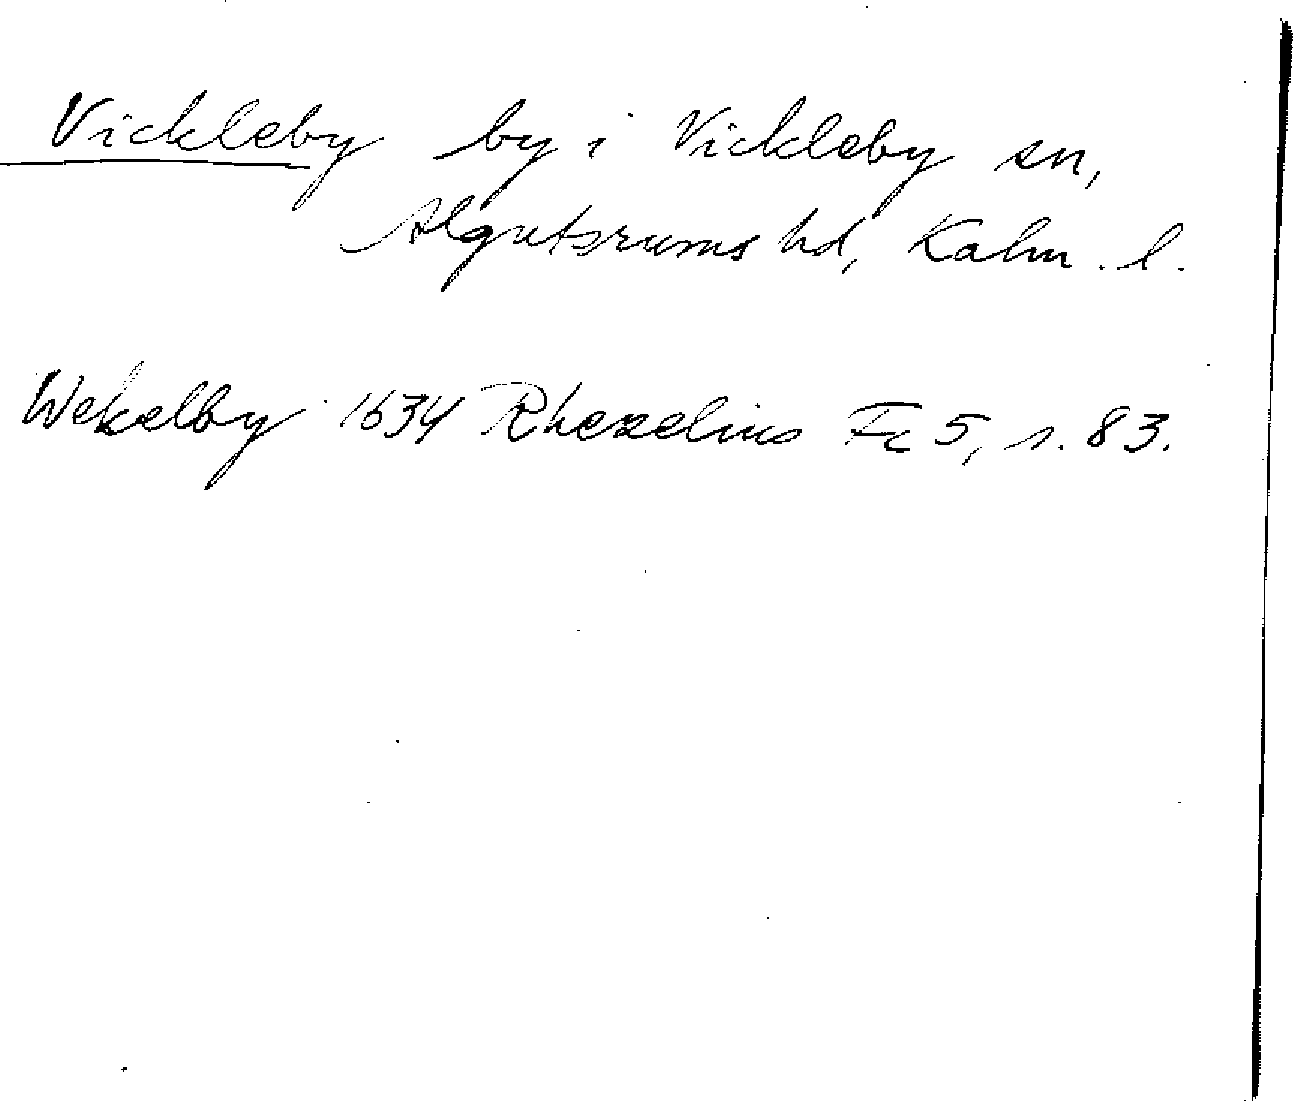 Vickleby by i Vickleby sn,
Algutsrums hd, Kalm. l.
Wekelby 1634 Rhezelius Fc 5, s. 83.